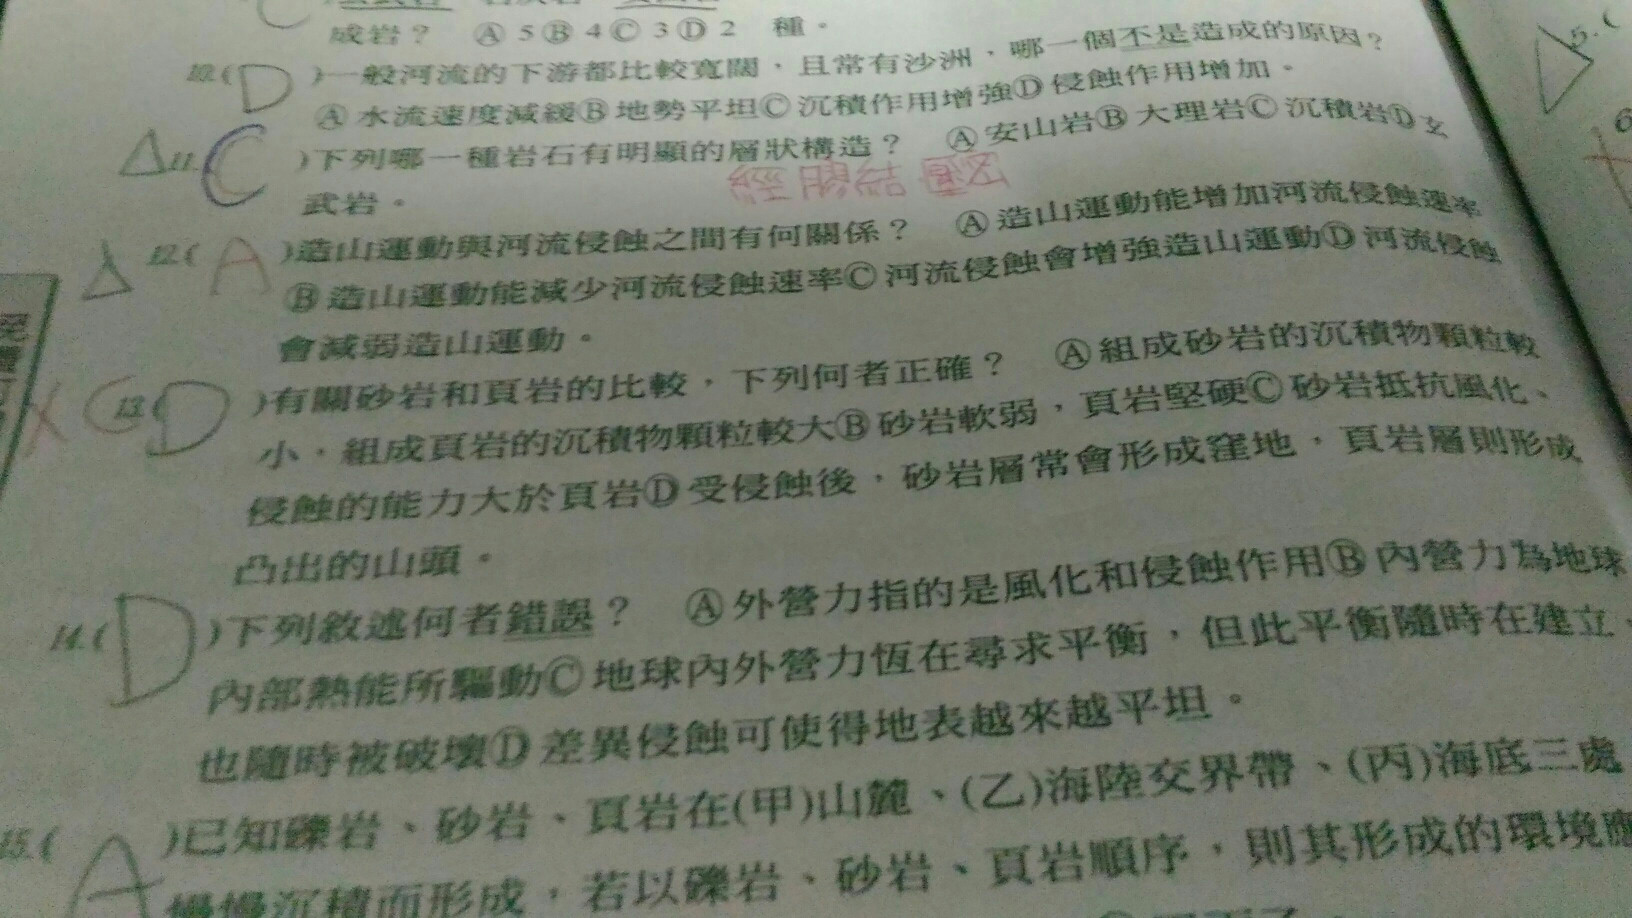 成岩？ Ⓐ 5 Ⓑ 4 Ⓒ 3 Ⓓ 2 種。
10.( D )一般河流的下游都比較寬闊，且常有沙洲，哪一個不是造成的原因？
Ⓐ 水流速度減緩Ⓑ 地勢平坦Ⓒ 沉積作用增強Ⓓ 侵蝕作用增加。
△ 11.( C )下列哪一種岩石有明顯的層狀構造？ Ⓐ 安山岩Ⓑ 大理岩Ⓒ 沉積岩Ⓓ 玄
經膠結壓密
武岩。
△ 12.( A )造山運動與河流侵蝕之間有何關係？ Ⓐ 造山運動能增加河流侵蝕速率
Ⓑ 造山運動能減少河流侵蝕速率Ⓒ 河流侵蝕會增強造山運動Ⓓ 河流侵蝕
會減弱造山運動。
X C 13.( D )有關砂岩和頁岩的比較，下列何者正確？ Ⓐ 組成砂岩的沉積物顆粒較
小，組成頁岩的沉積物顆粒較大Ⓑ 砂岩軟弱，頁岩堅硬Ⓒ 砂岩抵抗風化、
侵蝕的能力大於頁岩Ⓓ 受侵蝕後，砂岩層常會形成窪地，頁岩層則形成
凸出的山頭。
14.( D )下列敘述何者錯誤？ Ⓐ 外營力指的是風化和侵蝕作用Ⓑ 內營力為地球
內部熱能所驅動Ⓒ 地球內外營力恆在尋求平衡，但此平衡隨時在建立、
也隨時被破壞Ⓓ 差異侵蝕可使得地表越來越平坦。
15.( A )已知礫岩、砂岩、頁岩在(甲)山麓、(乙)海陸交界帶、(丙)海底三處
慢慢沉積而形成，若以礫岩、砂岩、頁岩順序，則其形成的環境應
△ 5.(
6